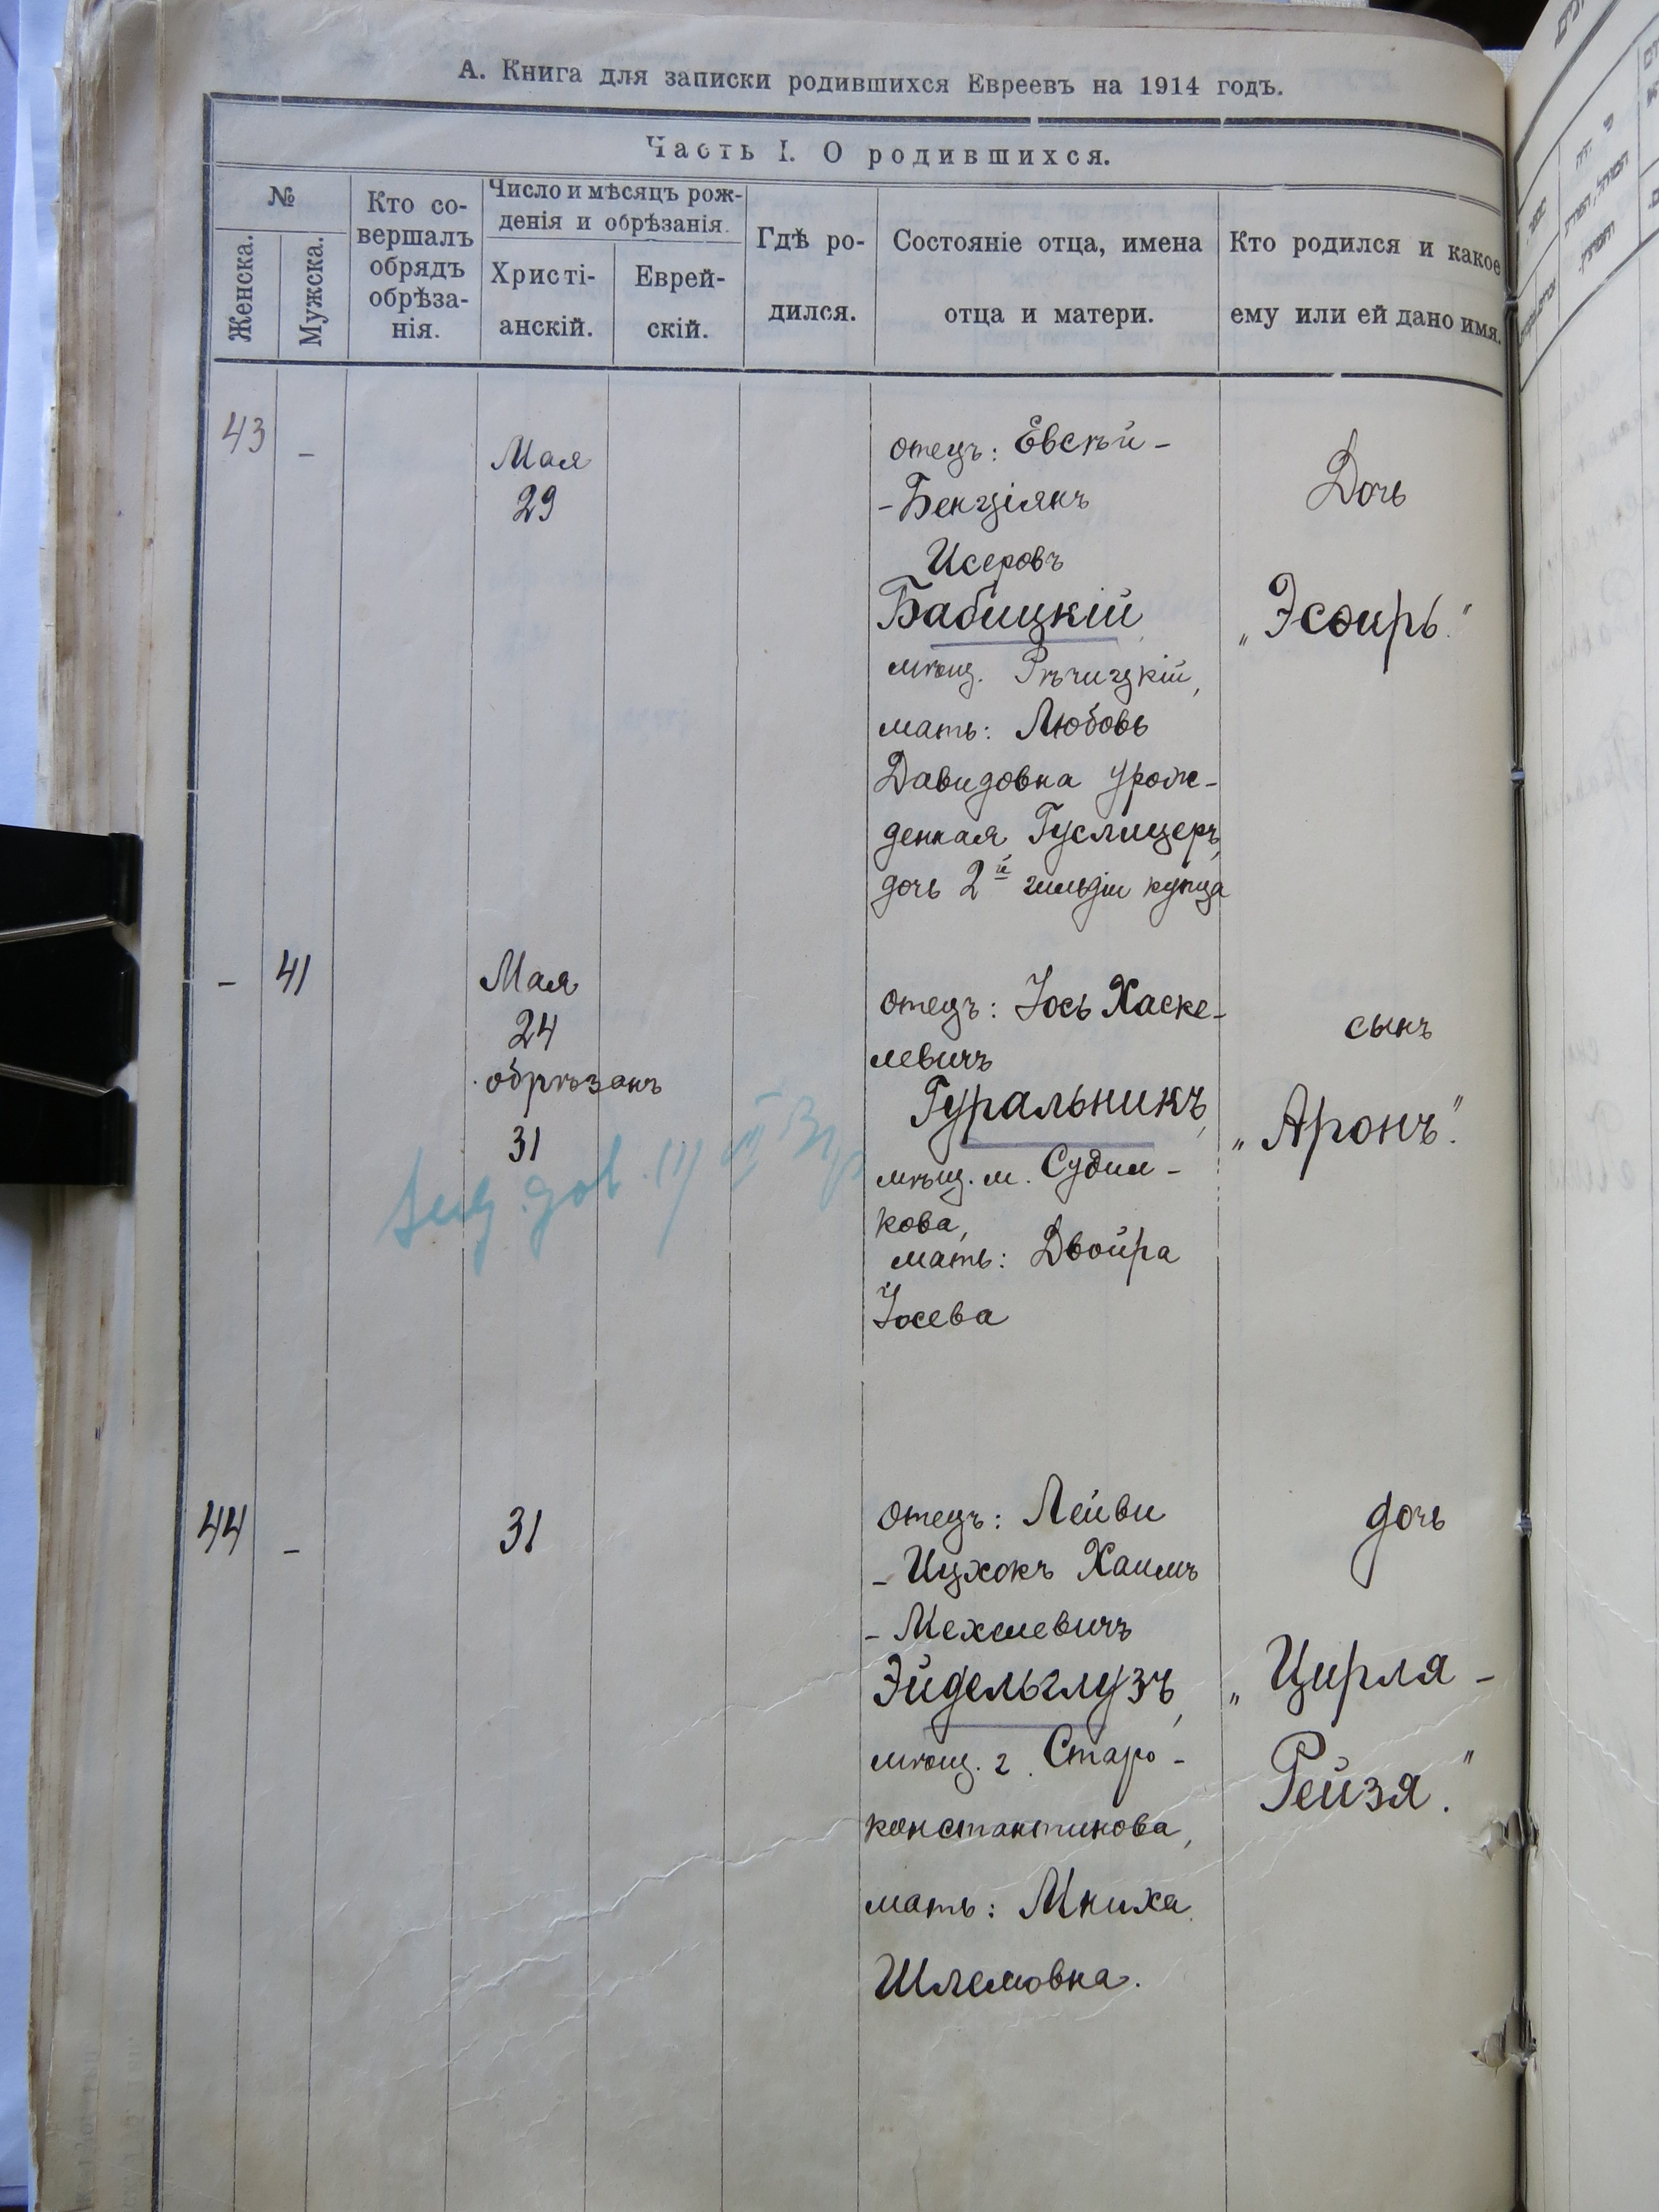 А. Книга для записки родившихся Евреевъ на 1914 годъ.
Часть I. О родившихся.
№
Женска.
Мужска.
Кто со-
вершалъ
обрядъ
обрѣза-
нія.
Число и мѣсяцъ рож-
денія и обрѣзанія.
Христі-
анскій.
Еврей-
скій.
Гдѣ ро-
дился.
Состояніе отца, имена
отца и матери.
Кто родился и какое
ему или ей дано имя.
43
-
Мая
29
отецъ: Евсѣй-
-Бенціянъ
Исеровъ
Бабицкій
мѣщ. Рѣчицкій,
мать: Любовь
Давидовна урож-
денная Гуслицеръ,
дочь 2й гильдіи купца
Дочь
„Эсѳирь."
-
41
Мая
24
обрѣзанъ
31
отецъ: Іось Хаске-
левичъ
Гуральникъ,
мѣщ. м. Судил-
кова,
мать: Двойра
Іосева
сынъ
„Аронъ".
44
-
31
отецъ: Лейви
-Ицхокъ Хаимъ
-Мехлевичъ
Эйдельглузъ,
мѣщ. г. Старо-
константинова,
мать: Мниха
Шлемовна.
дочь
„Цирля-
Рейзя."